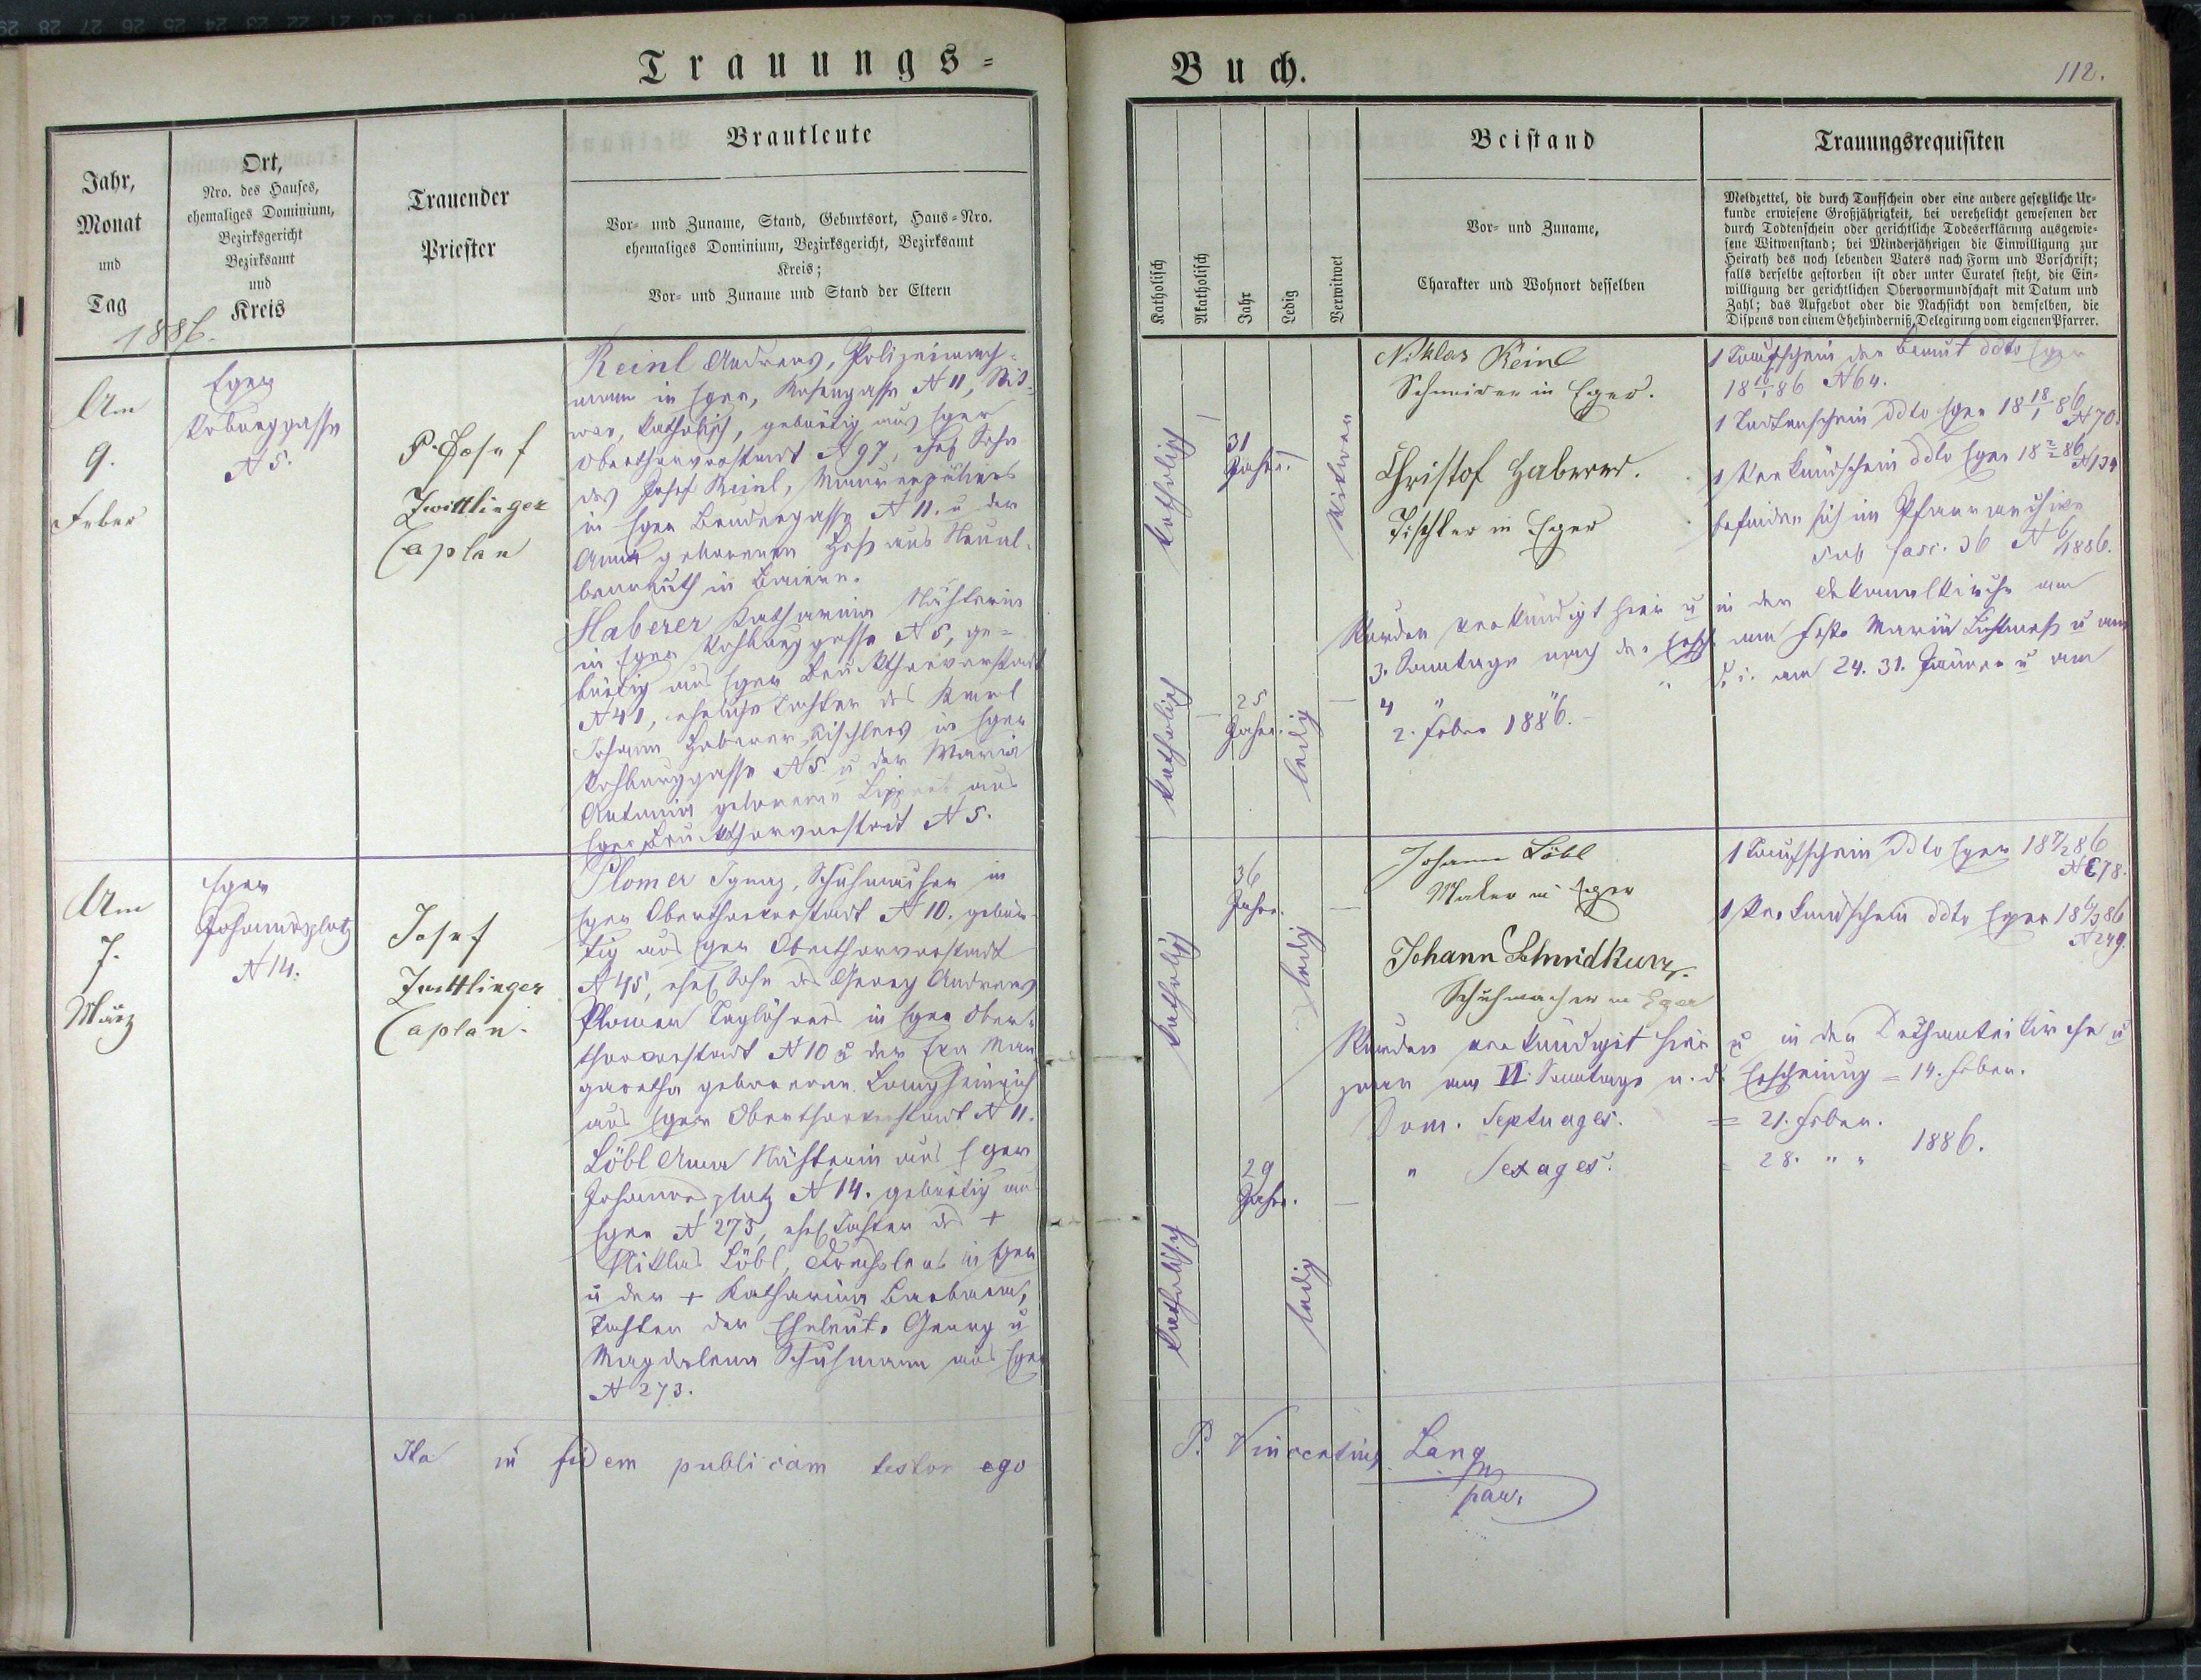 Trauungs-
Buch.
112.
Jahr,
Monat
und
Tag
1886.
Ort,
Nro. des Hauses,
ehemaliges Dominium,
Bezirksgericht
Bezirksamt
und
Kreis
Trauender
Priester
Brautleute
Vor- und Zuname, Stand, Geburtsort, Haus-Nro.
ehemaliges Dominium, Bezirksgericht, Bezirksamt
Kreis;
Vor- und Zuname und Stand der Eltern
Katholisch
Akatholisch
Jahr
Ledig
Verwitwet
Beistand
Vor- und Zuname,
Charakter und Wohnort desselben
Trauungsrequisiten
Meldzettel, die durch Taufschein oder eine andere gesetzliche Ur-
kunde erwiesene Großjährigkeit, bei verehelicht gewesenen der
durch Todtenschein oder gerichtliche Todeserklärung ausgewie-
sene Witwenstand; bei Minderjährigen die Einwilligung zur
Heirath des noch lebenden Vaters nach Form und Vorschrift;
falls derselbe gestorben ist oder unter Curatel steht, die Ein-
willigung der gerichtlichen Obervormundschaft mit Datum und
Zahl; das Aufgebot oder die Nachsicht von demselben, die
Dispens von einem Ehehinderniß, Delegirung vom eigenen Pfarrer.
Am
9.
Feber
Eger
N 5.
P. Josef
Zwittlinger
Caplan
Reinl Andreas, Polizeiwach-
mann in Eger, Rosengasse N 11, Wit-
wer, katholisch, gebürtig aus Eger
Oberthorvorstadt N 97, ehel Sohn
des Josef Reinl, Maurerpoliers
in Eger Brudergasse N 11. u der
Anna geborenen Heß aus Neual-
benreuth in Baiern.
Haberer Katharina Nähterin
in Eger N 5, ge-
bürtig aus Eger Bruckthorvorstadt
N 41, eheliche Tochter des Karl
Johann Haberer, Tischlers in Eger
N 5 u der Maria
Antonia geborenen Lippert aus
Eger Bruckthorvorstadt N 5.
katholisch
31
Jahre
Witwer
katholisch
25
Jahre.
ledig
Niklas Reinl
Schneider in Eger.
Christof Haberer.
Tischler in Eger
1 Taufschein der Braut ddto Eger
18 86 N 64.
1 Todtenschein ddto Eger 18 18/1 86
N 70.
1 Verkündschein ddto Eger 18 86
N 134
befinden sich im Pfarrarchive
sub fasc. 36 N 6/1886.
Wurden verkündigt hier u in der Dekanalkirche am
3. Sonntage nach der Ersch. am Feste Mariä Lichtmeß u am
4 " " d. i. am 24. 31. Jänner u am
2. Feber 1886.
Am
7.
März
Eger
Johannsplatz
N 14.
Josef
Zwittlinger
Caplan.
Plomer Ignaz, Schuhmacher in
Eger Oberthorvorstadt N 10. gebür-
tig aus Eger Oberthorvorstadt
N 45, ehel Sohn des Georg Andreas
Plomer Taglöhners in Eger Ober-
thorvorstadt N 10 u der Eva Mar-
garetha geborenen Langheinrich
aus Eger Oberthorvorstadt N 11.
Löbl Anna Nähterin aus Eger
Johannsplatz N 14. gebürtig aus
Eger N 275, ehel Tochter des +
Niklas Löbl, Drechslers in Eger
u der + Katharina Barbara,
Tochter der Eheleute Georg u
Magdalena Schuhmann aus Eger
N 273.
katholisch
36
Jahre.
ledig
katholisch
29
Jahre.
ledig
Johann Löbl
Maler in Eger
Johann Schmidkunz.
Schuhmacher in Eger
1 Taufschein ddto Eger 18 7/2 86
N 178.
1 Verkündschein ddto Eger 18 6/3 86
N 249.
Wurden verkündigt hier u in der Dechanteikirche u
zwar am VI. Sonntage n. d. Erscheinung = 14. Feber.
Dom. Septuages. = 21. Feber.
" Sexages. = 28. " " 1886.
Ita in fidem publicam testor ego
P. Vincentius Lang
par.